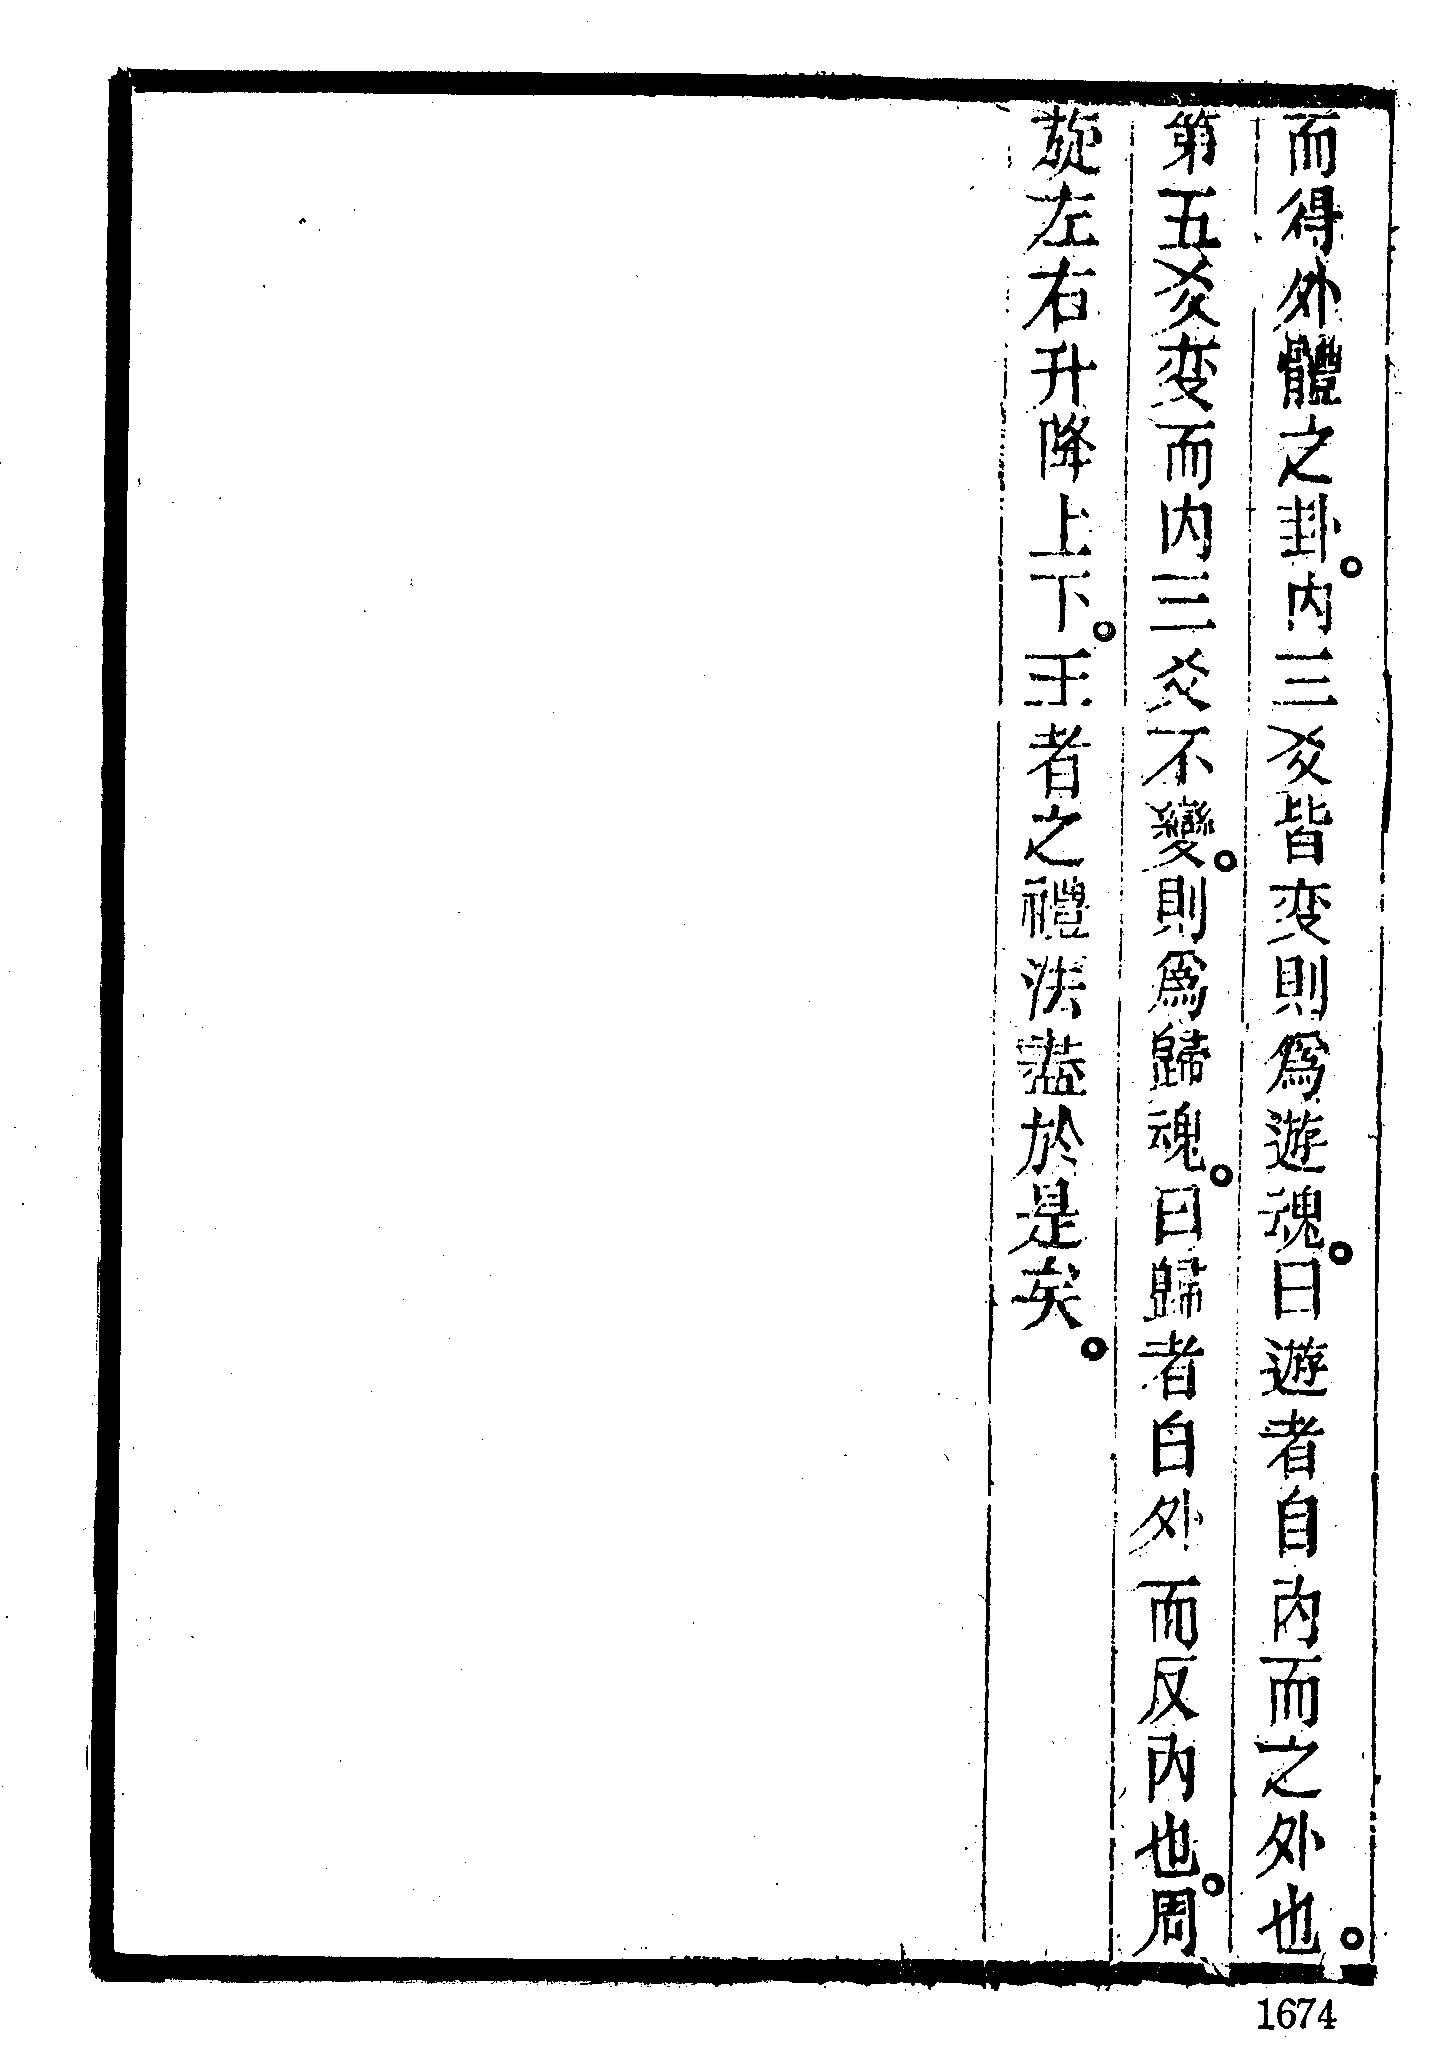 而得外體之卦。内三爻皆变則爲遊魂。曰遊者自内而之外也。
第五爻变而内三爻不變。則爲歸魂。曰歸者自外而反内也。周
旋左右升降上下。王者之禮法盡於是矣。
1674